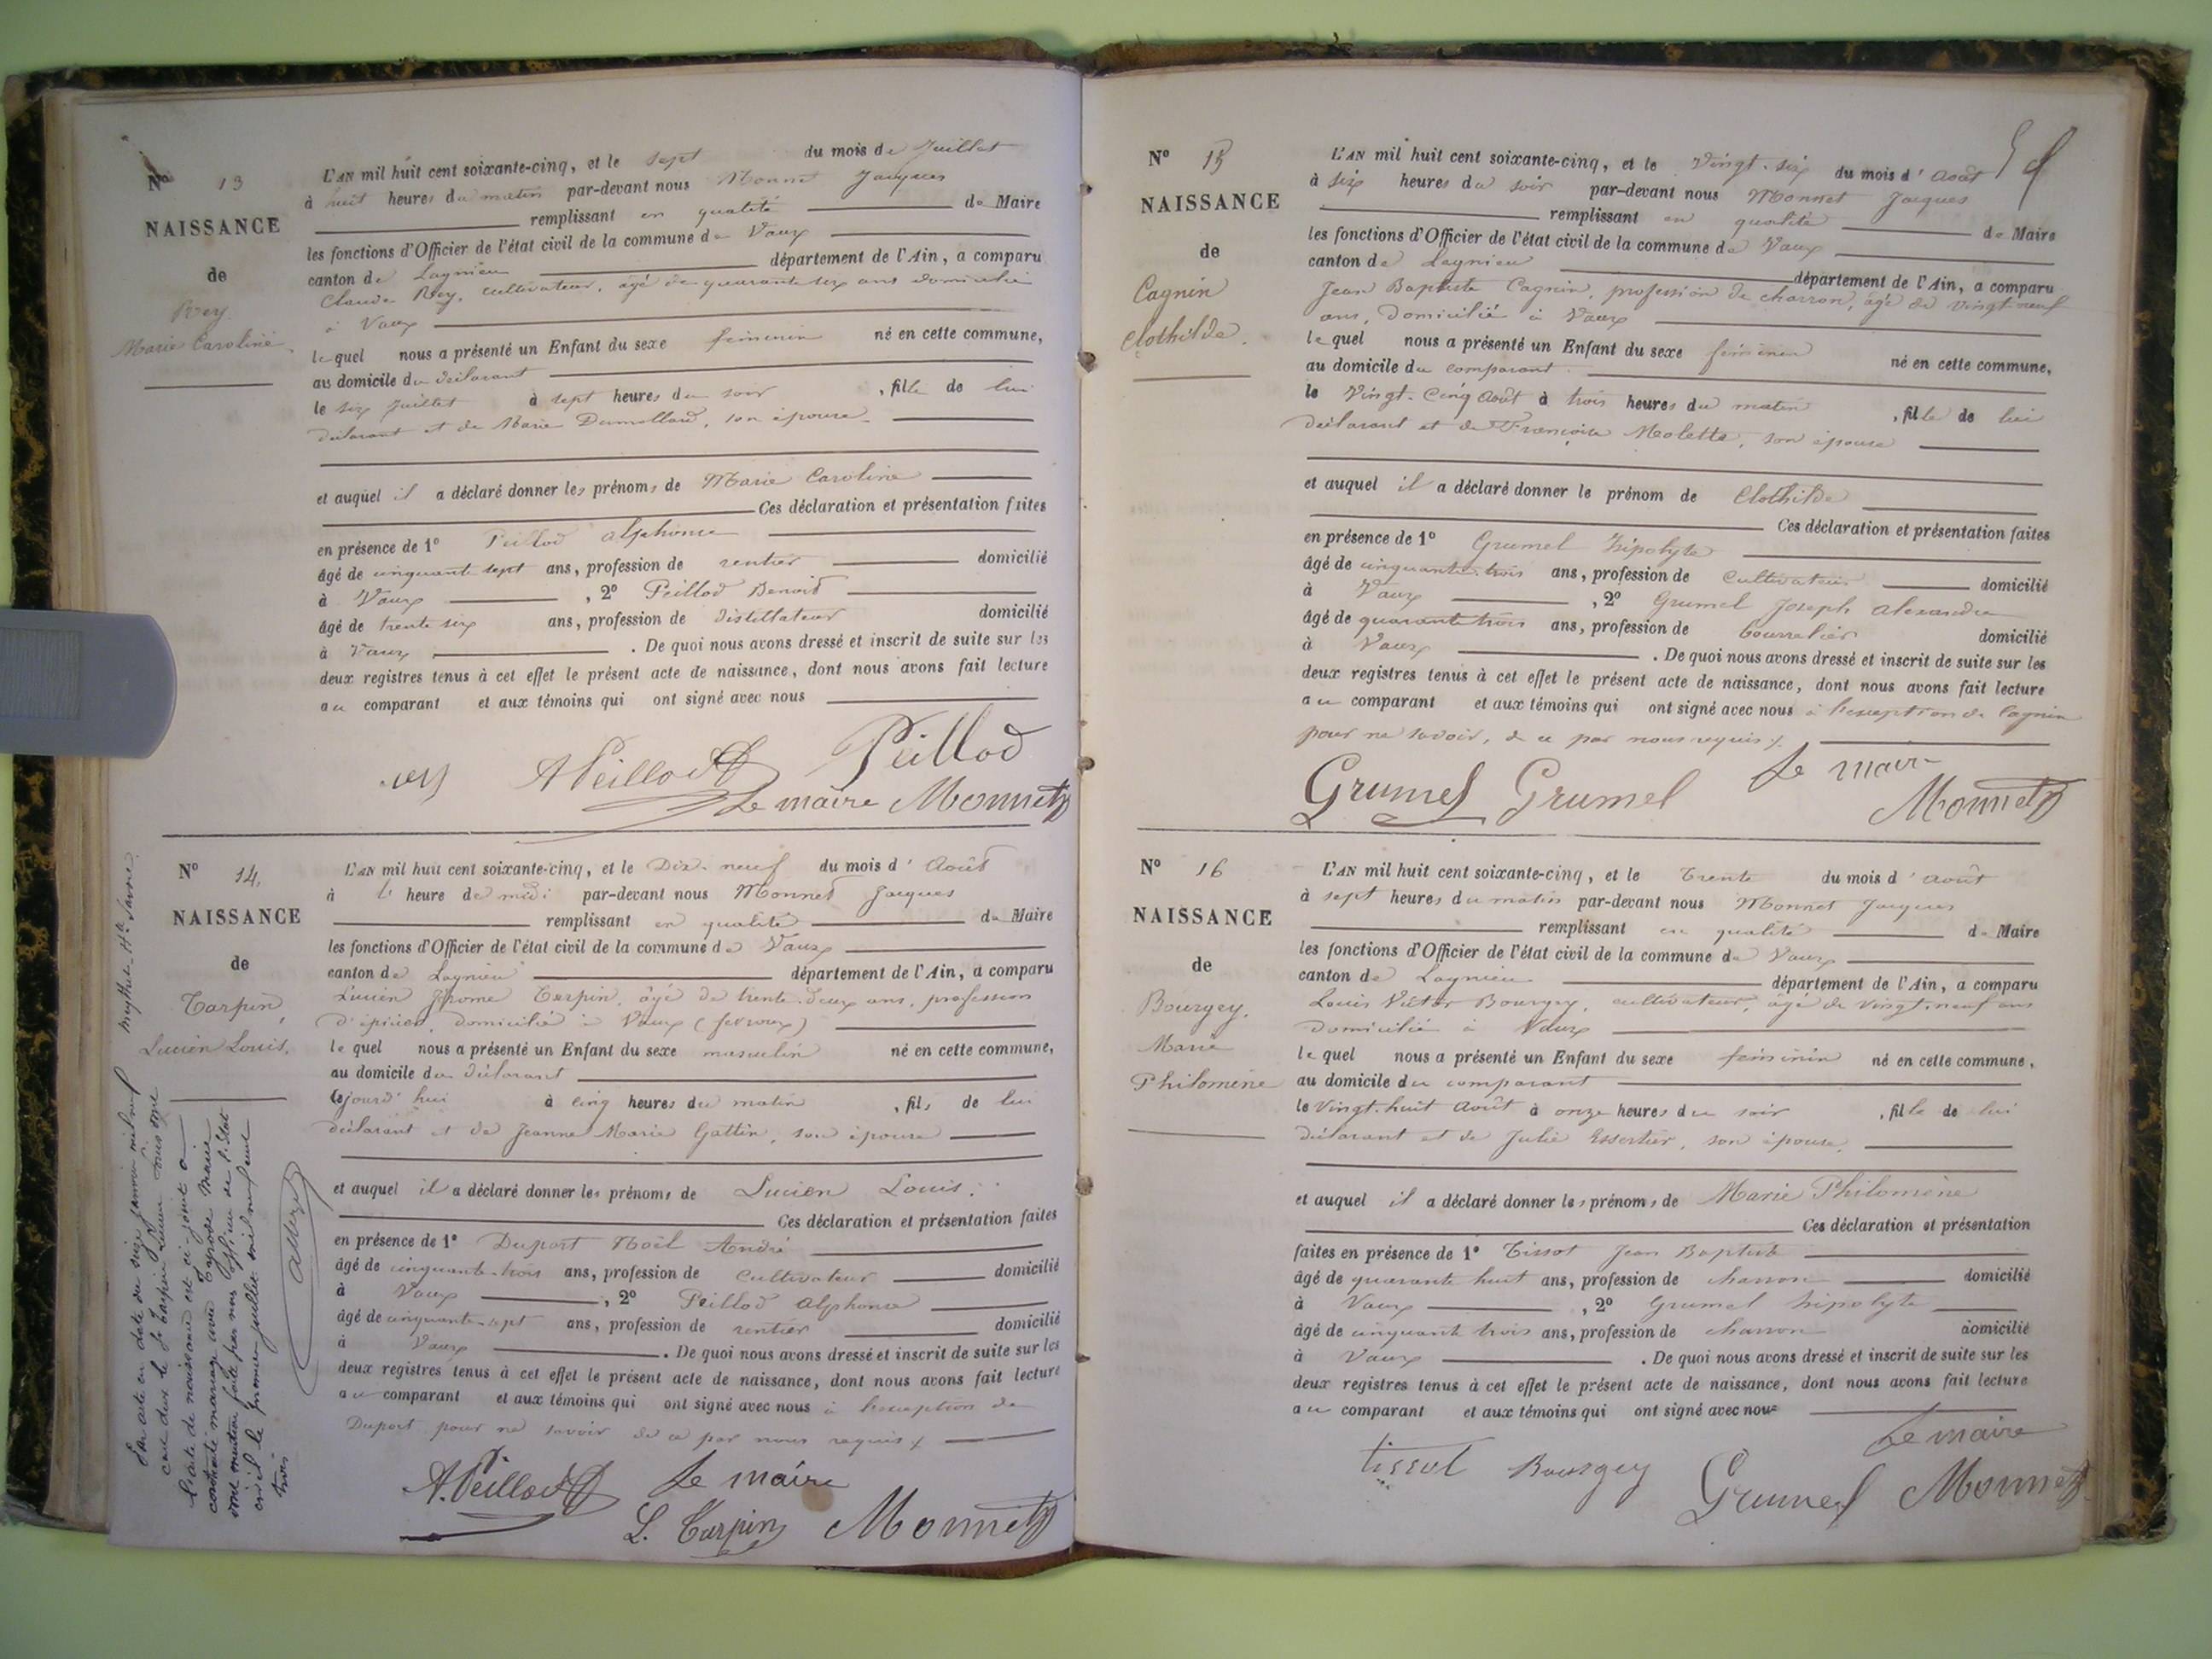 N° 13
NAISSANCE
de
Rey
Marie Caroline
L'AN mil huit cent soixante-cinq, et le sept du mois de Juillet
à huit heures du matin par-devant nous Monnet Jacques
remplissant en qualité de Maire
les fonctions d'Officier de l'état civil de la commune de Vaux
canton de Lagnieu département de l'Ain, a comparu
Claude Rey, cultivateur, âgé de quarante six ans domicilié
à Vaux
lequel nous a présenté un Enfant du sexe féminin né en cette commune,
au domicile du déclarant
le six Juillet à sept heures du soir, fille de lui
déclarant et de Marie Dumollard, son épouse
et auquel il a déclaré donner les prénoms de Marie Caroline
Ces déclaration et présentation faites
en présence de 1° Peillod Alphonse
âgé de cinquante sept ans, profession de rentier domicilié
à Vaux, 2° Peillod Benoit
âgé de trente six ans, profession de distillateur domicilié
à Vaux. De quoi nous avons dressé et inscrit de suite sur les
deux registres tenus à cet effet le présent acte de naissance, dont nous avons fait lecture
au comparant et aux témoins qui ont signé avec nous
rey A Peillod Peillod
Le maire Monnet
N° 14.
NAISSANCE
de
Tarpin,
Lucien Louis.
L'AN mil huit cent soixante-cinq, et le Dix-neuf du mois d'Août
à l' heure de midi par-devant nous Monnet Jacques
remplissant en qualité de Maire
les fonctions d'Officier de l'état civil de la commune de Vaux
canton de Lagnieu département de l'Ain, a comparu
Lucien Jérome Tarpin, âgé de trente-deux ans, profession
d'épicier, domicilié à Vaux (fevroux)
lequel nous a présenté un Enfant du sexe masculin né en cette commune,
au domicile du déclarant
cejourd'hui à cinq heures du matin, fils de lui
déclarant et de Jeanne Marie Gattin, son épouse
et auquel il a déclaré donner les prénoms de Lucien Louis.
Ces déclaration et présentation faites
en présence de 1° Duport Noël André
âgé de cinquante-trois ans, profession de cultivateur domicilié
à Vaux, 2° Peillod Alphonse
âgé de cinquante-sept ans, profession de rentier domicilié
à Vaux. De quoi nous avons dressé et inscrit de suite sur les
deux registres tenus à cet effet le présent acte de naissance, dont nous avons fait lecture
au comparant et aux témoins qui ont signé avec nous à l'exception de
Duport pour ne savoir de ce par nous requis
A. Peillod Le maire
L. Tarpin Monnet
Par acte en date du seize janvier mil neuf
cent deux le Sr Tarpin Lucien Louis
l'acte de naissance est ci-joint a
contracté mariage avec Marie
une mention faite par nous officier de l'état
civil le premier juillet mil neuf cent
trois
N° 15
NAISSANCE
de
Cagnin
Clothilde.
L'AN mil huit cent soixante-cinq, et le Vingt-six du mois d'Août
à six heures du soir par-devant nous Monnet Jacques
remplissant en qualité de Maire
les fonctions d'Officier de l'état civil de la commune de Vaux
canton de Lagnieu département de l'Ain, a comparu
Jean Baptiste Cagnin, profession de charron, âgé de vingt-neuf
ans, domicilié à Vaux
lequel nous a présenté un Enfant du sexe féminin né en cette commune,
au domicile du comparant.
le Vingt-Cinq Août à trois heures du matin, fille de lui
déclarant et de Françoise Molette, son épouse
et auquel il a déclaré donner le prénom de Clothilde
Ces déclaration et présentation faites
en présence de 1° Grumel hipolyte
âgé de cinquante-trois ans, profession de cultivateur domicilié
à Vaux, 2° Grumel Joseph Alexandre
âgé de quarante trois ans, profession de bourrelier domicilié
à Vaux. De quoi nous avons dressé et inscrit de suite sur les
deux registres tenus à cet effet le présent acte de naissance, dont nous avons fait lecture
au comparant et aux témoins qui ont signé avec nous à l'exception de Cagnin
pour ne savoir, de ce par nous requis
Grumel Grumel Le maire
Monnet
N° 16
NAISSANCE
de
Bourgey,
Marie
Philomène
L'AN mil huit cent soixante-cinq, et le Trente du mois d'Août
à sept heures du matin par-devant nous Monnet Jacques
remplissant en qualité de Maire
les fonctions d'Officier de l'état civil de la commune de Vaux
canton de Lagnieu département de l'Ain, a comparu
Louis Victor Bourgey, cultivateur, âgé de vingt-neuf ans
domicilié à Vaux
lequel nous a présenté un Enfant du sexe féminin né en cette commune,
au domicile du comparant
le Vingt-huit Août à onze heures du soir, fille de lui
déclarant et de Julie Essertier, son épouse,
et auquel il a déclaré donner les prénoms de Marie Philomène
Ces déclaration et présentation
faites en présence de 1° Tissot Jean Baptiste
âgé de quarante huit ans, profession de charron domicilié
à Vaux, 2° Grumel hipolyte
âgé de cinquante trois ans, profession de charron domicilié
à Vaux. De quoi nous avons dressé et inscrit de suite sur les
deux registres tenus à cet effet le présent acte de naissance, dont nous avons fait lecture
au comparant et aux témoins qui ont signé avec nous
Le maire
tissot Bourgey Grumel Monnet